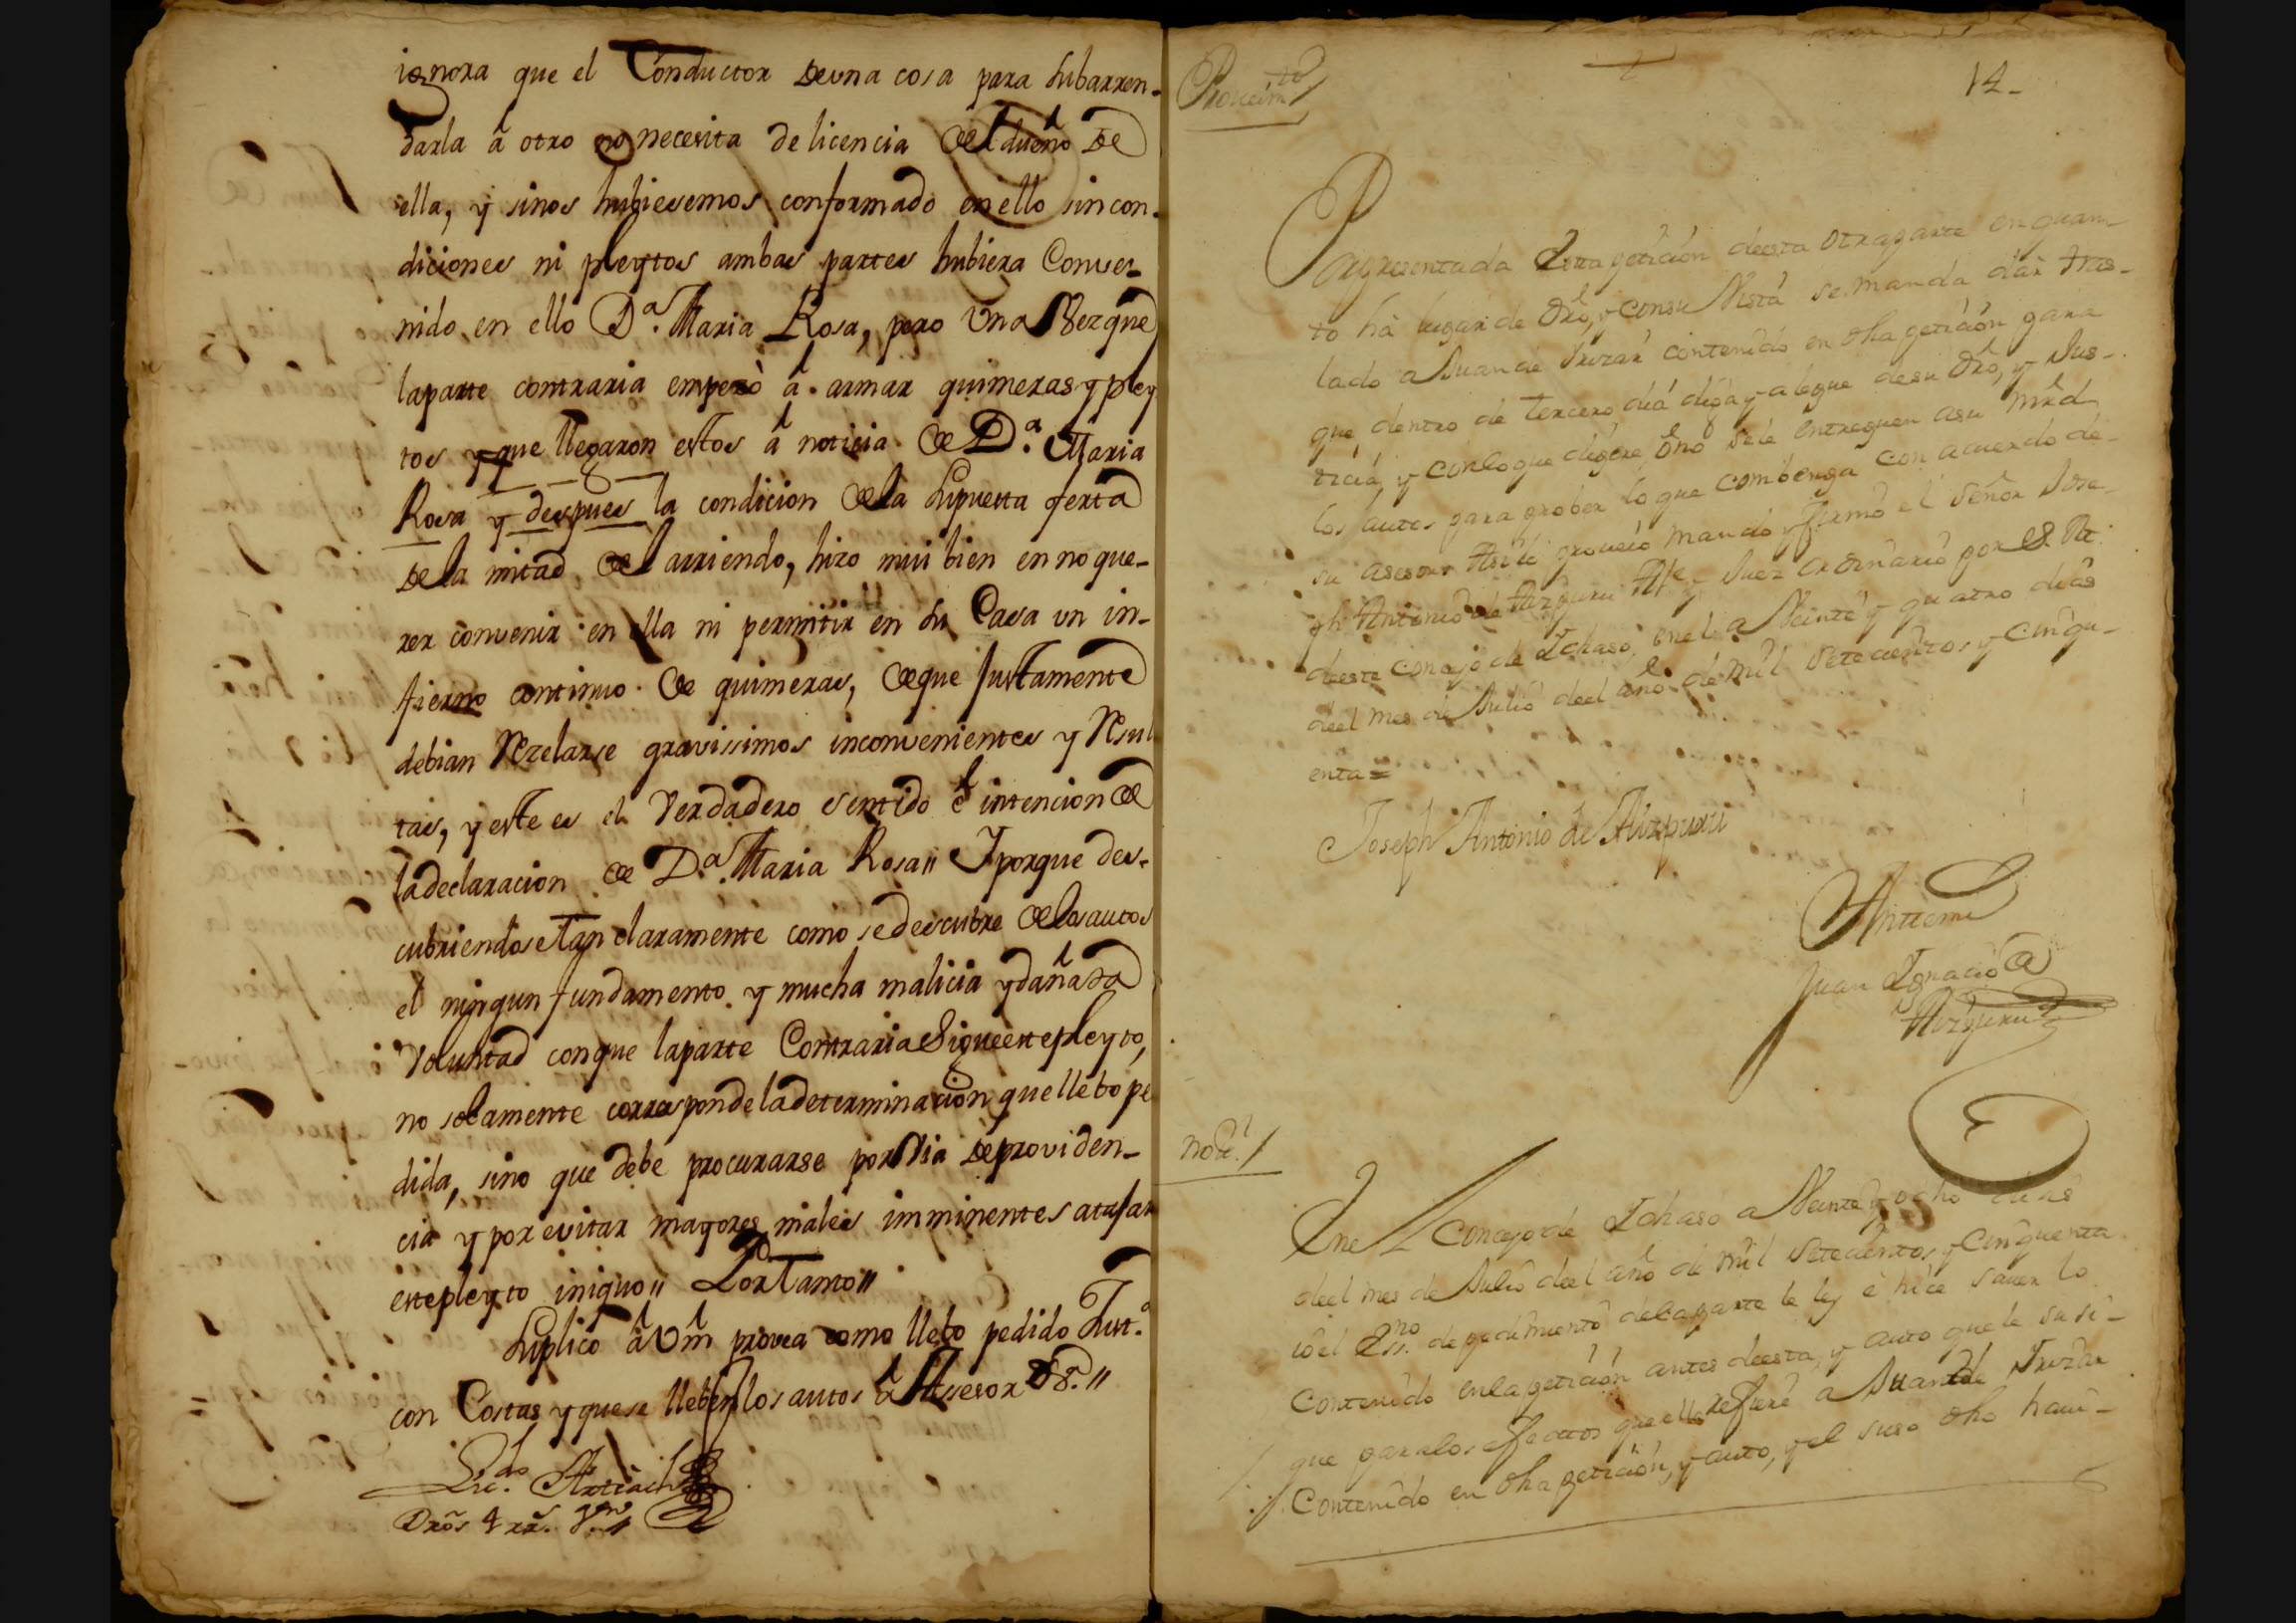 ignora que el Conductor de una cosa para subarren-
darla â otro no necesita de licencia del dueño de
ella, y sinos hubiesemos conformado en ello sin con-
diciones ni pleytos ambas partes hubiera Conve-
nido en ello D.ª Maria Rosa, pero una Vez que
la parte contraria empezò â armar quimeras y pley
tos y que llegaron estos â noticia de D.ª Maria
Rosa y despues la condicion de la supuesta
de la mitad del arriendo, hizo mui bien en no que-
rer convenir en ella ni permitir en su Casa un in-
fierno continuo de quimeras, de que justamente
debian Rezelarse gravissimos inconvenientes y Resul
tas, y este es el Verdadero sentido ê intencion de
la declaracion de D.ª Maria Rosa" Y porque des-
cubriendose tan claramente como se descubre de los autos
el ningun fundamento y mucha malicia y dañada
Voluntad con que la parte Contraria Sigue este pleyto,
no solamente corresponde la determinacion que llebo pe
dida, sino que debe procurarse por Via de providen-
cia y por evitar mayores males imminentes atajar
este pleyto iniquo" Por Tanto"
Suplico â Vm provea como llebo pedido Just.ª
con Costas y que se lleben los autos â Assesor &ª."
Lic.do Artiach
Drõs 4 rr.
Proveim.to
14-
Presentada esta petición de esta otra parte en quan-
to hà lugar de Dro, y con su Vista se manda dar tras-
lado a Juan de Irizar contenido en dha petición para
que dentro de tercero dia diga y alegue de su Dro, y Jus-
ticia y con lo que digere ô no se le entreguen a su mrd
los autos para prober lo que combenga con acuerdo de
su asesor Asi lo proveió mandó y firmó el señor Jose-
ph Antonio de Aizpuru Alc.e y Juez ordinario por S. M.
de este concejo de Ichaso, en el a Veinte y quatro dias
de el mes de Julio de el año de mil Setecientos y Cinqu-
enta =
Joseph Antonio de Aizpuru
Ante mi
Juan Ignacio de
Aizpuru
not.n
En el Concejo de Ichaso a Veinte y ocho dias
de el mes de Julio de el año de mil Setecientos y Cinquenta
io el Ess.no de pedimiento de la parte le ley è hice saver lo
Contenido en la petición antes de esta, y auto que le susi-
gue para los efectos que ella refiere a Juan de Irizar
Contenido en dha petición, y auto, y el suso dho havi-